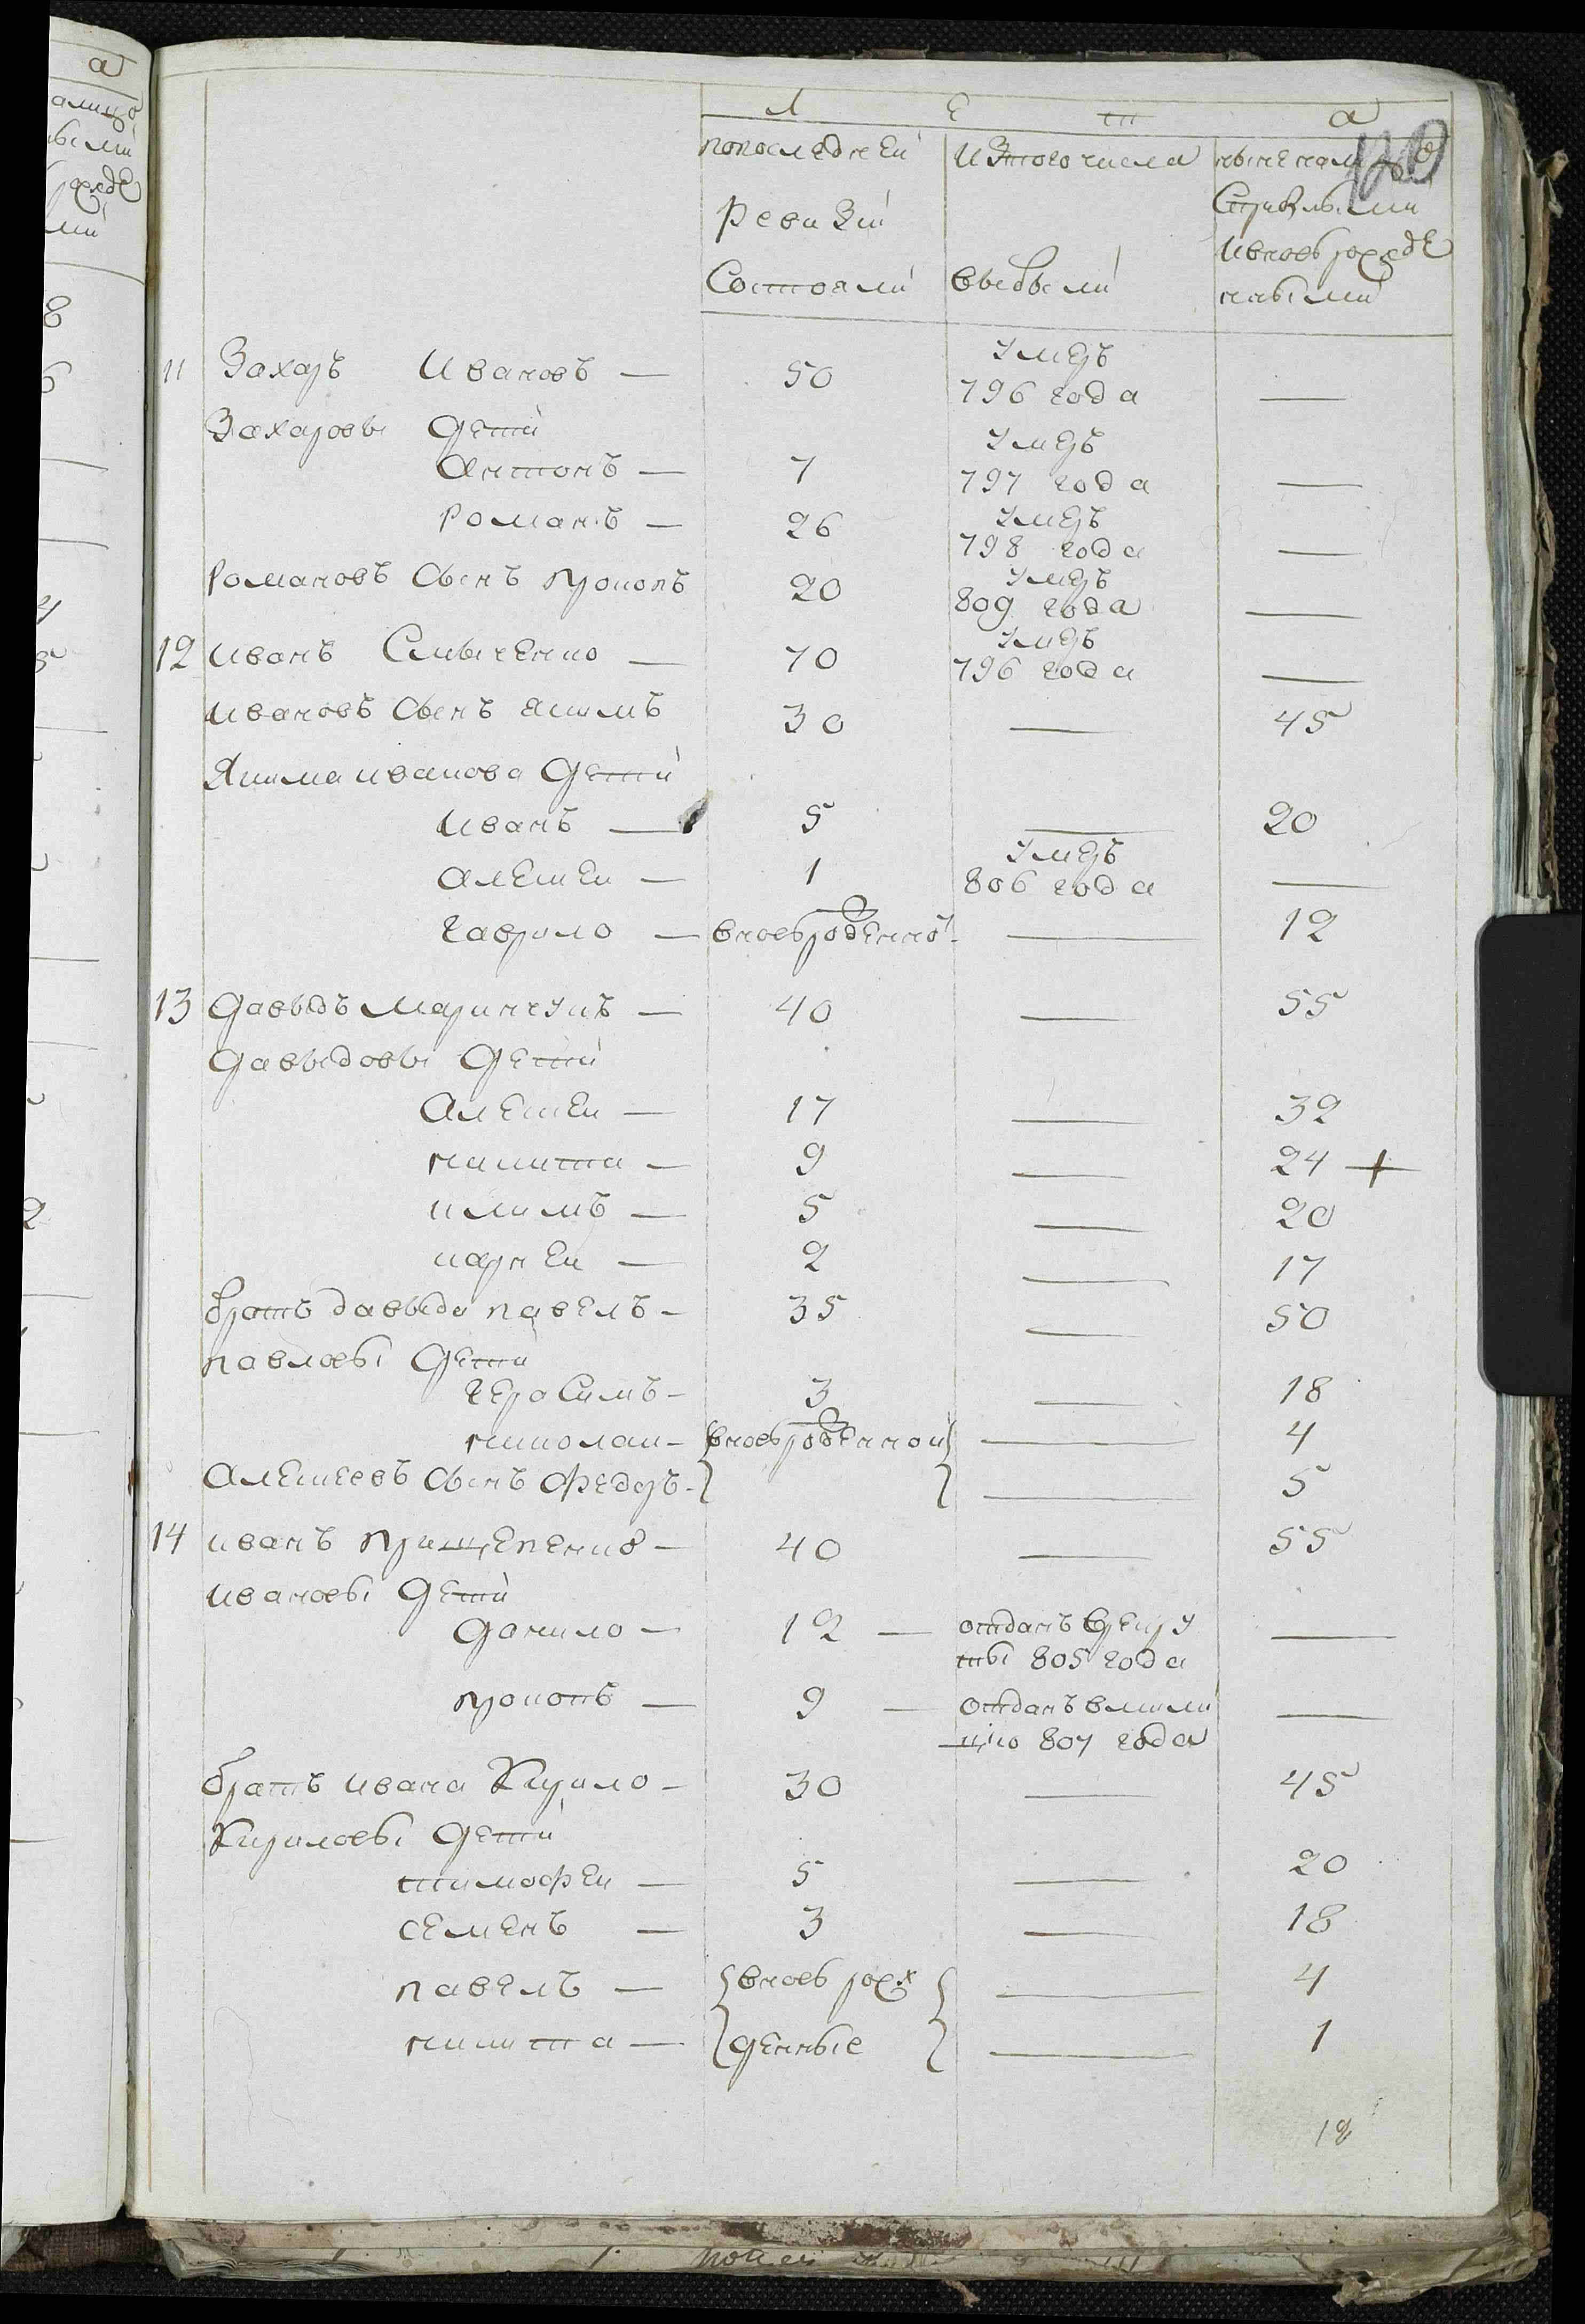 Л Е Т А
попоследней изтого числа ныне налицо
Ревизий с прибылыми
Состояли выбыли и вновь рожде
нными
11 Захаръ Ивановъ — 50 умеръ —
796 года
Захаровы Дети
Антонъ — 7 умеръ —
797 года
Романъ — 26 умеръ —
798 года
Романовъ Сынъ Прокопъ 20 умеръ —
809 года
12 Иванъ Смыченко — 70 умеръ —
796 года
Ивановъ Сынъ Якимъ 30 — 45
Якима Иванова Дети
Иванъ — 5 — 20
Алексеи — 1 умеръ —
806 года
Гаврило — вновь рожденной — 12
13 Давыдъ Маринчукъ — 40 — 55
Давыдовы Дети
Алексеи — 17 — 32
Никита — 9 — 24 +
Климъ — 5 — 20
Карнеи — 2 — 17
братъ давыда Павелъ — 35 — 50
Павловы Дети
Герасимъ — 3 — 18
Николаи — вновь рожденнои — 4
Алексеевъ Сынъ Федоръ — — 5
14 Иванъ Прищепенко — 40 — 55
Ивановы Дети
Данило — 12 — отданъ врекру —
ты 805 года
Прокопъ — 9 — отданъ вмили —
цию 807 года
братъ Ивана Кирило — 30 — 45
Кириловы Дети
Тимофеи — 5 — 20
Семенъ — 3 — 18
Павелъ — вновь рож — 4
Никита — денные — 1